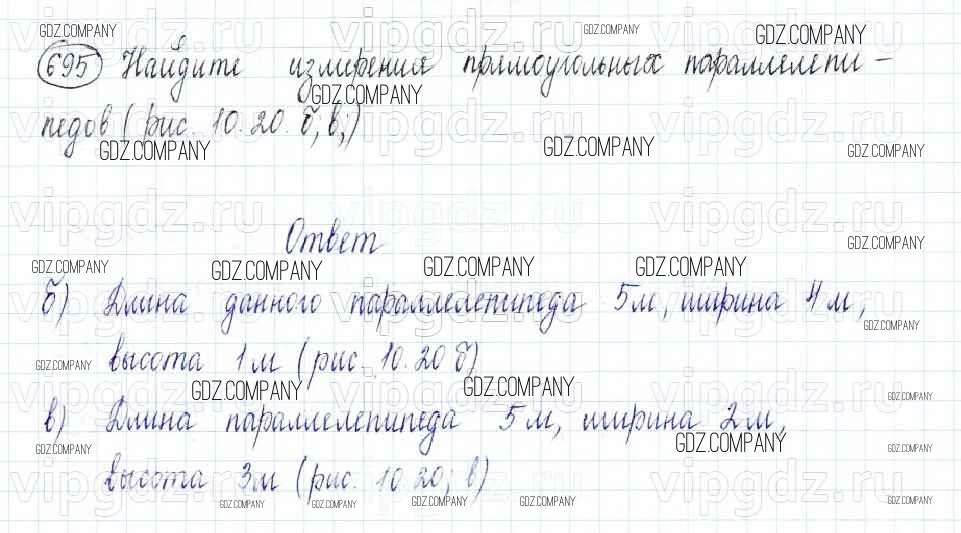 GDZ.COMPANY GDZ.COMPANY GDZ.COMPANY
vipgdz.ru vipgdz.ru vipgdz.ru
695 Найдите измерения прямоугольных параллелепи -
GDZ.COMPANY
педов ( рис. 10.20. б; в;)
vipgdz.ru vipgdz.ru vipgdz.ru
GDZ.COMPANY GDZ.COMPANY GDZ.COMPANY
vipgdz.ru vipgdz.ru vipgdz.ru
Ответ
GDZ.COMPANY
GDZ.COMPANY GDZ.COMPANY GDZ.COMPANY GDZ.COMPANY
б) Длина данного параллелепипеда 5м, ширина 4 м,
vipgdz.ru vipgdz.ru vipgdz.ru
GDZ.COMPANY
высота 1 м ( рис. 10. 20 б)
GDZ.COMPANY
GDZ.COMPANY GDZ.COMPANY GDZ.COMPANY
vipgdz.ru vipgdz.ru vipgdz.ru
в) Длина параллелепипеда 5 м, ширина 2 м,
GDZ.COMPANY GDZ.COMPANY GDZ.COMPANY
высота 3м (рис. 10 20; в)
vipgdz.ru vipgdz.ru vipgdz.ru
GDZ.COMPANY GDZ.COMPANY GDZ.COMPANY GDZ.COMPANY GDZ.COMPANY